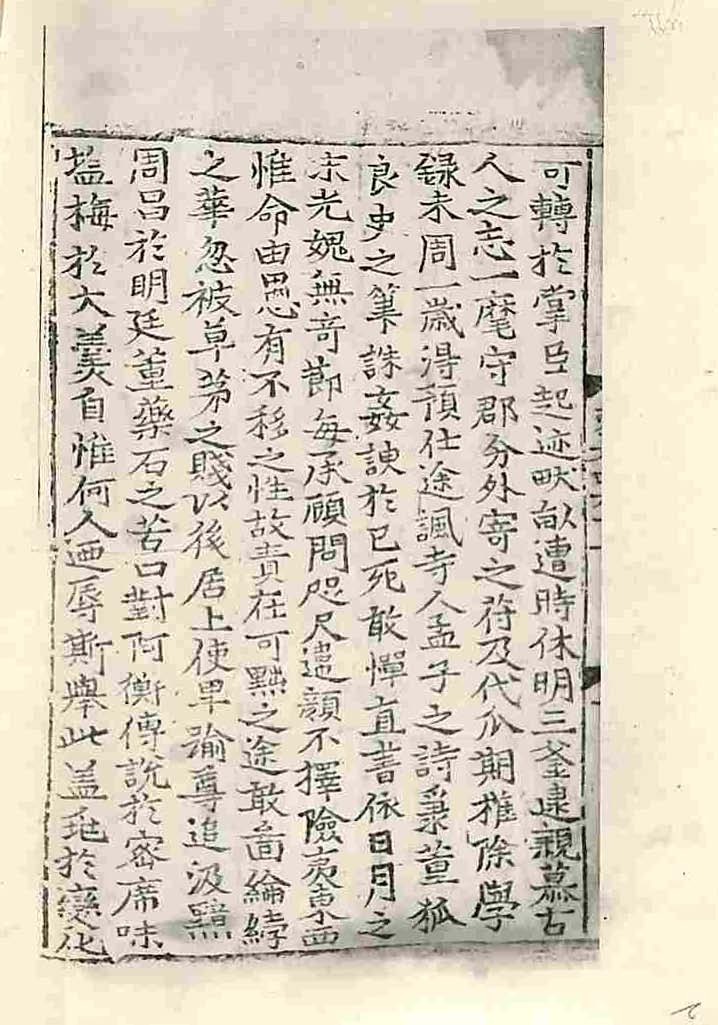 可轉於掌臣起迹畎畒遭時休明三釜逮親慕古
人之志一麾守郡分外寄之苻及代瓜期擢除學
錄未周一歲淂預仕途諷寺人孟子之詩秉董狐
良史之筆誅姦諛於已死敢憚直書依日月之
末光媿無竒莭每承顧問咫尺違顔不擇險夷東西
惟命由愚有不移之性故責在可黜之途敢啚綸綍
之華忽被草茅之賤以後居上使卑踰尊追汲黯
周昌於明廷董藥石之苦口對阿衡傅說於宻席味
塩梅於大羮自惟何人迺辱斯舉此盖乹於變化